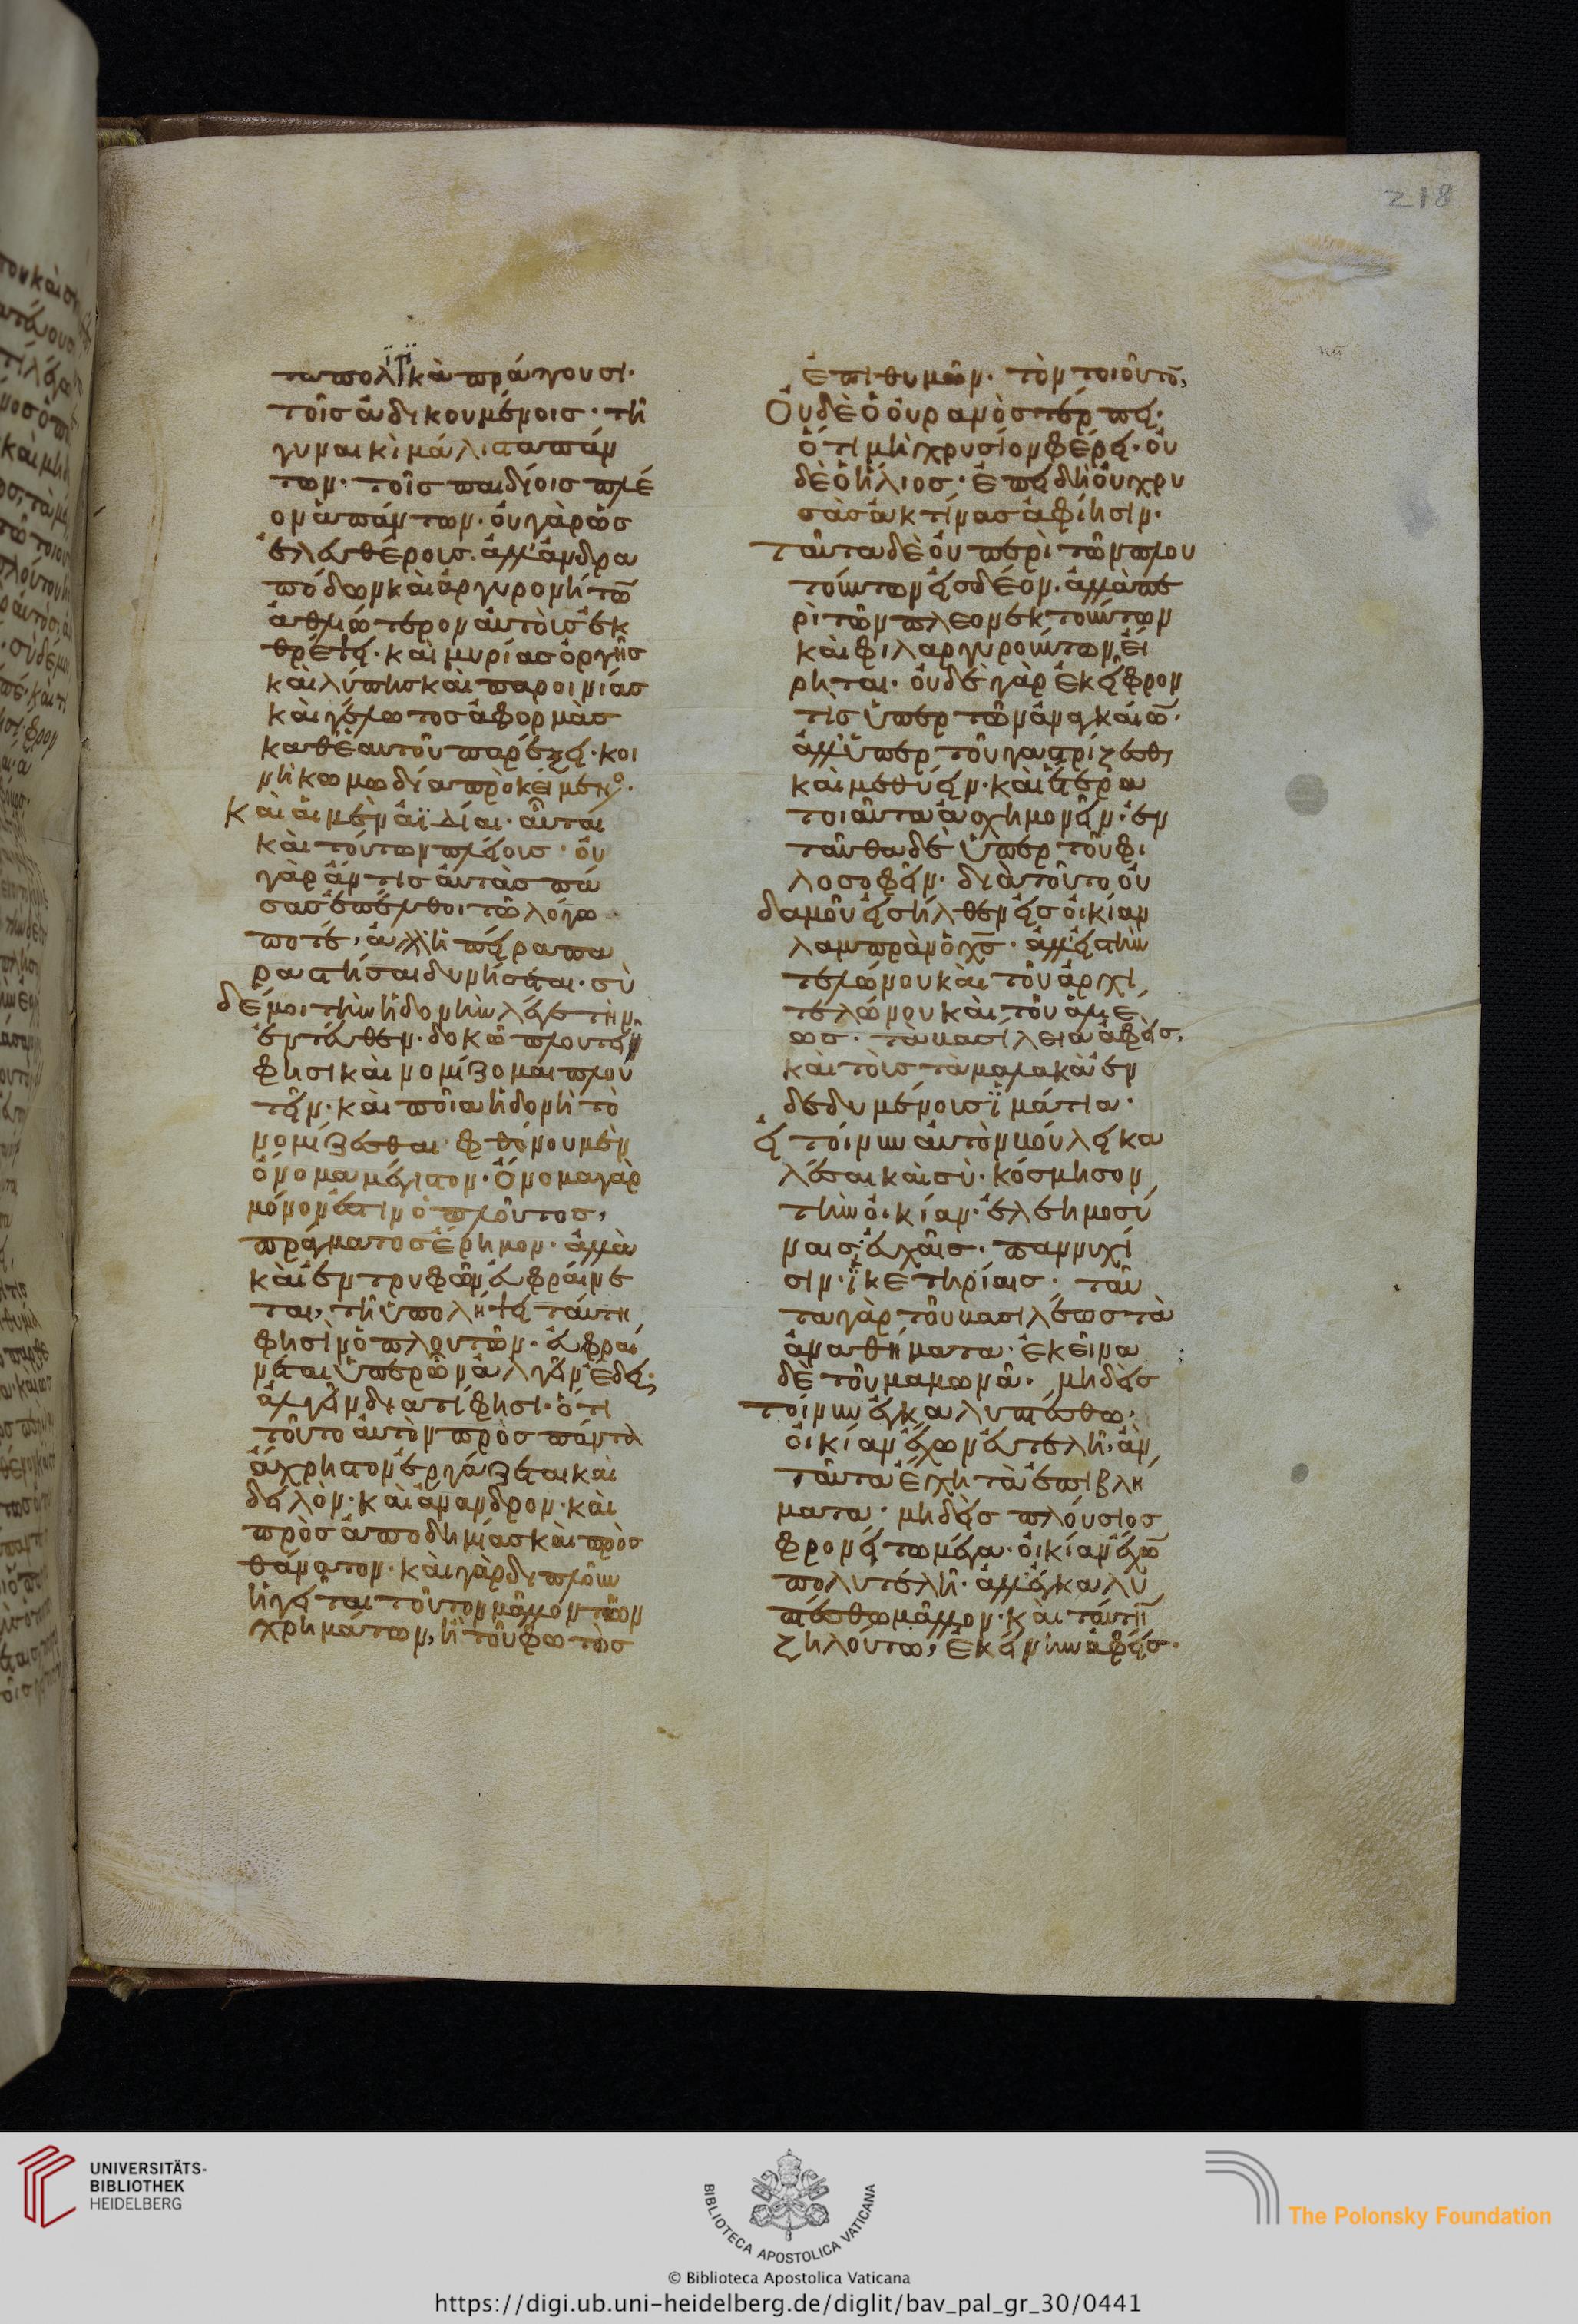 218
τα πολϊτϊκὰ πράγουσι·
τοῖς ἀδικουμένοις· τῆ
γυναικὶ μάλιστα πάν
των· τοῖς παιδίοις πλέ
ον ἁπάντων· οὐ γὰρ ὡς
ἐλευθέρους· ἀλλ' ἀνδρα
πόδων καὶ ἀργυρονήτω̅
ἀθλιώτερον αὐτοὺς ἐκ
θρέψει· καὶ μυρίας ὀργῆς
καὶ λύπης καὶ παροινίας
καὶ γέλωτος ἀφορμὰς
καθ' ἑαυτοῦ παρέχει· κοι
νὴ κωμωδία προκείμενο·
Καὶ αἱ μὲν ἀϊδίαι· αὗται
καὶ τούτων πλείους· οὐ
γὰρ ἄν τις αὐτὰς πά
σας ἐπέλθοι τῶ λόγω
ποτέ, ἀλλ' ἡ πεῖρα πα
ραστῆσαι δυνήσεται· σὺ
δέ μοι τὴν ἡδονὴν λέγε τὴν
ἐντεῦθεν· δοκῶ πλουτεῖν
φησι καὶ νομίζομαι πλου
τεῖν· καὶ ποία ἡδονὴ τὸ
νομίζεσθαι· φθόνου μὲν
ὄνομα μέγιστον· Ὄνομα γὰρ
μόνον ἐστιν ὁ πλοῦτος,
πράγματος ἔρημον· ἀλλὰ
καὶ ἐντρυφῶν εὐφραίνε
ται, τῆ ὑπολήψει ταύτη
φησὶν ὁ πλουτῶν· εὐφραί
νεται ὑπὲρ ὧν ἀλγεῖν ἔδει·
ἀλγεῖν διατί φησι· ὅτι
τοῦτο αὐτὸν πρὸς πάντα
ἄχρηστον ἐργάζεται καὶ
δειλὸν· καὶ ἄνανδρον· καὶ
πρὸς ἀποδημίας καὶ πρὸς
θάνατον· καὶ γὰρ διπλοῦν
ἡγεῖται τοῦτον μᾶλλον τῶν
χρημάτων, ἢ τοῦ φωτὸς
ἐπιθυμῶν· τὸν τοιοῦτο̅,
Οὐδὲ ὁ οὐρανὸς τέρπει·
ὅτι μὴ χρυσίον φέρει· οὐ
δὲ ὁ ἥλιος· ἐπειδὴ οὐ χρυ
σὰς ἀκτίνας ἀφίησιν·
Ταῦτα δὲ οὐ περὶ τῶν πλου
τούντων εἰς δέον· ἀλλὰ πε
ρὶ τῶν πλεονεκτούντων
καὶ φιλαργυρούντων εἴ
ρηται· οὐδὲ γὰρ ἐκεῖ φρον
τὶς ὑπὲρ τῶν ἀναγκαίω̅·
ἀλλ' ὑπὲρ τοῦ γαστρίζεσθαι
καὶ μεθύειν· καὶ ἕτερα
τοιαῦτα ἀσχημονεῖν· ἐν
ταῦθα δὲ ὑπὲρ τοῦ φι
λοσοφεῖν· διὰ τοῦτο οὐ
δαμοῦ εἰσῆλθεν εἰς οἰκίαν
λαμπρὰν ὁ χ̅ς̅· ἀλλ' εἰς τὴν
τελώνου καὶ τοῦ ἀρχι
τελώνου καὶ τοῦ ἁλιέ
ως· τὰ βασίλεια ἀφεὶς,
καὶ τοὺς τὰ μαλακὰ ἐν
δεδυμένους ϊμάτια·
εἰ τοίνυν αὐτὸν βούλει κα
λέσαι καὶ σὺ· κόσμησον
τὴν οἰκίαν· ἐλεημοσύ
ναις· εὐχαῖς· παννυχί
σιν· ϊκετηρίαις· ταῦ
τα γὰρ τοῦ βασιλέως τὰ
ἀναθήματα· ἐκεῖνα
δὲ τοῦ μαμωνᾶ· μηδεὶς
τοίνυν ἐγκαλυπτέσθω·
οἰκίαν ἔχων εὐτελῆ, ἂν
ταῦτα ἔχη τὰ ἐπιβλή
ματα· μηδεὶς πλούσιος
φρονείτω μέγα· οἰκίαν ἔχω̅
πολυτελῆ· ἀλλ' ἐγκαλυ
πτέσθω μᾶλλον· καὶ ταύτην
ζηλούτω, ἐκείνην ἀφεὶς·
UNIVERSITÄTS-
BIBLIOTHEK
HEIDELBERG
BIBLIOTECA APOSTOLICA VATICANA
© Biblioteca Apostolica Vaticana
The Polonsky Foundation
https://digi.ub.uni-heidelberg.de/diglit/bav_pal_gr_30/0441